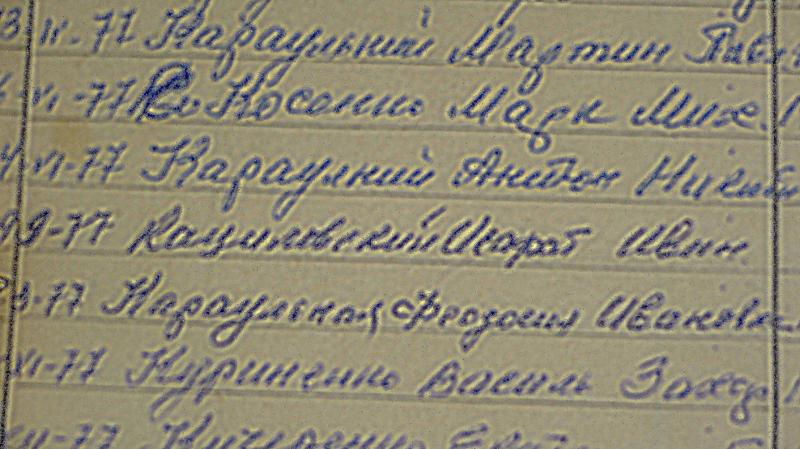 -77 Караульний Мартин Павл
-VI-77 Косенко Марк Мих.
VI-77 Караулний Антон Никит
-77 Кацимовский Игнат Иван
-77 Караульная Феодосия Ивановна
VI-77 Куриненко Василь Захар
-77